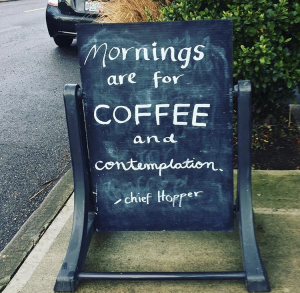 Mornings
are for
COFFEE
and
contemplation.
- chief Hopper